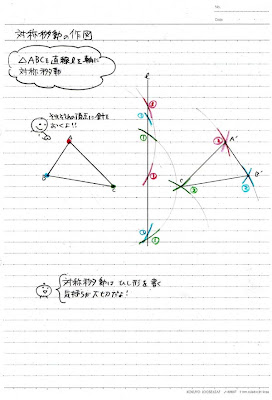 No.
Date
対称移動の作図
△ABCを直線ℓを軸に
対称移動
それぞれの頂点に針を
おくよ!!
ℓ
② ③ ① ② ③ ①
A B C
A' B' C'
② ③ ①
対称移動は ひし形を書く
気持ちが大切だよ!